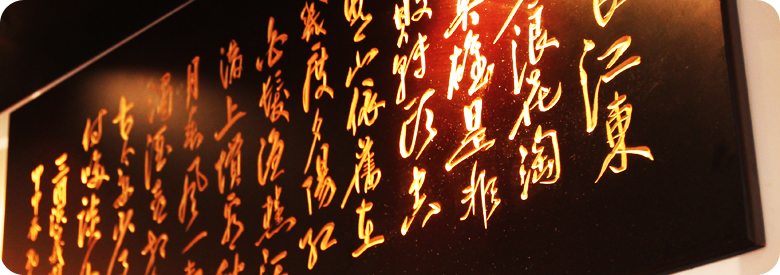 江東
浪花淘
雄是非
敗轉頭空
山依舊在
幾度夕陽紅
白髮漁樵江
渚上慣看秋
月春風一壺
濁酒喜相
古今多少
付笑談
三國演義
甲申